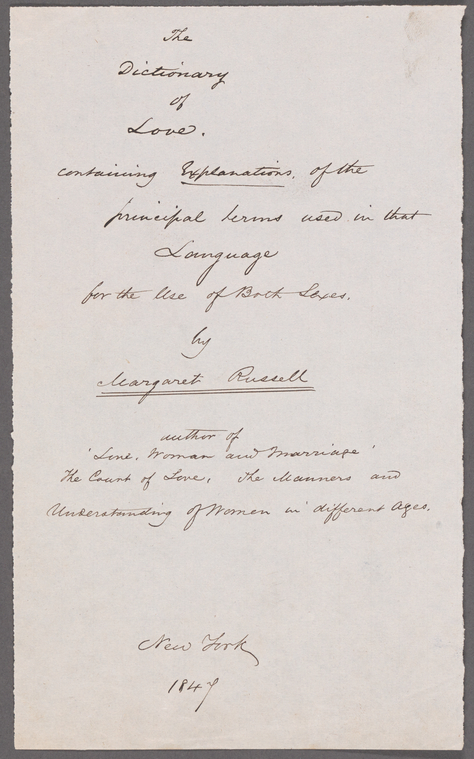 The
Dictionary
of
Love.
containing Explanations, of the
principal terms used in that
Language
for the Use of Both Sexes.
by
Margaret Russell
author of
'Love, Woman and Marriage'
The Court of Love, The Manners and
Understanding of Women in different Ages.
New York
1847